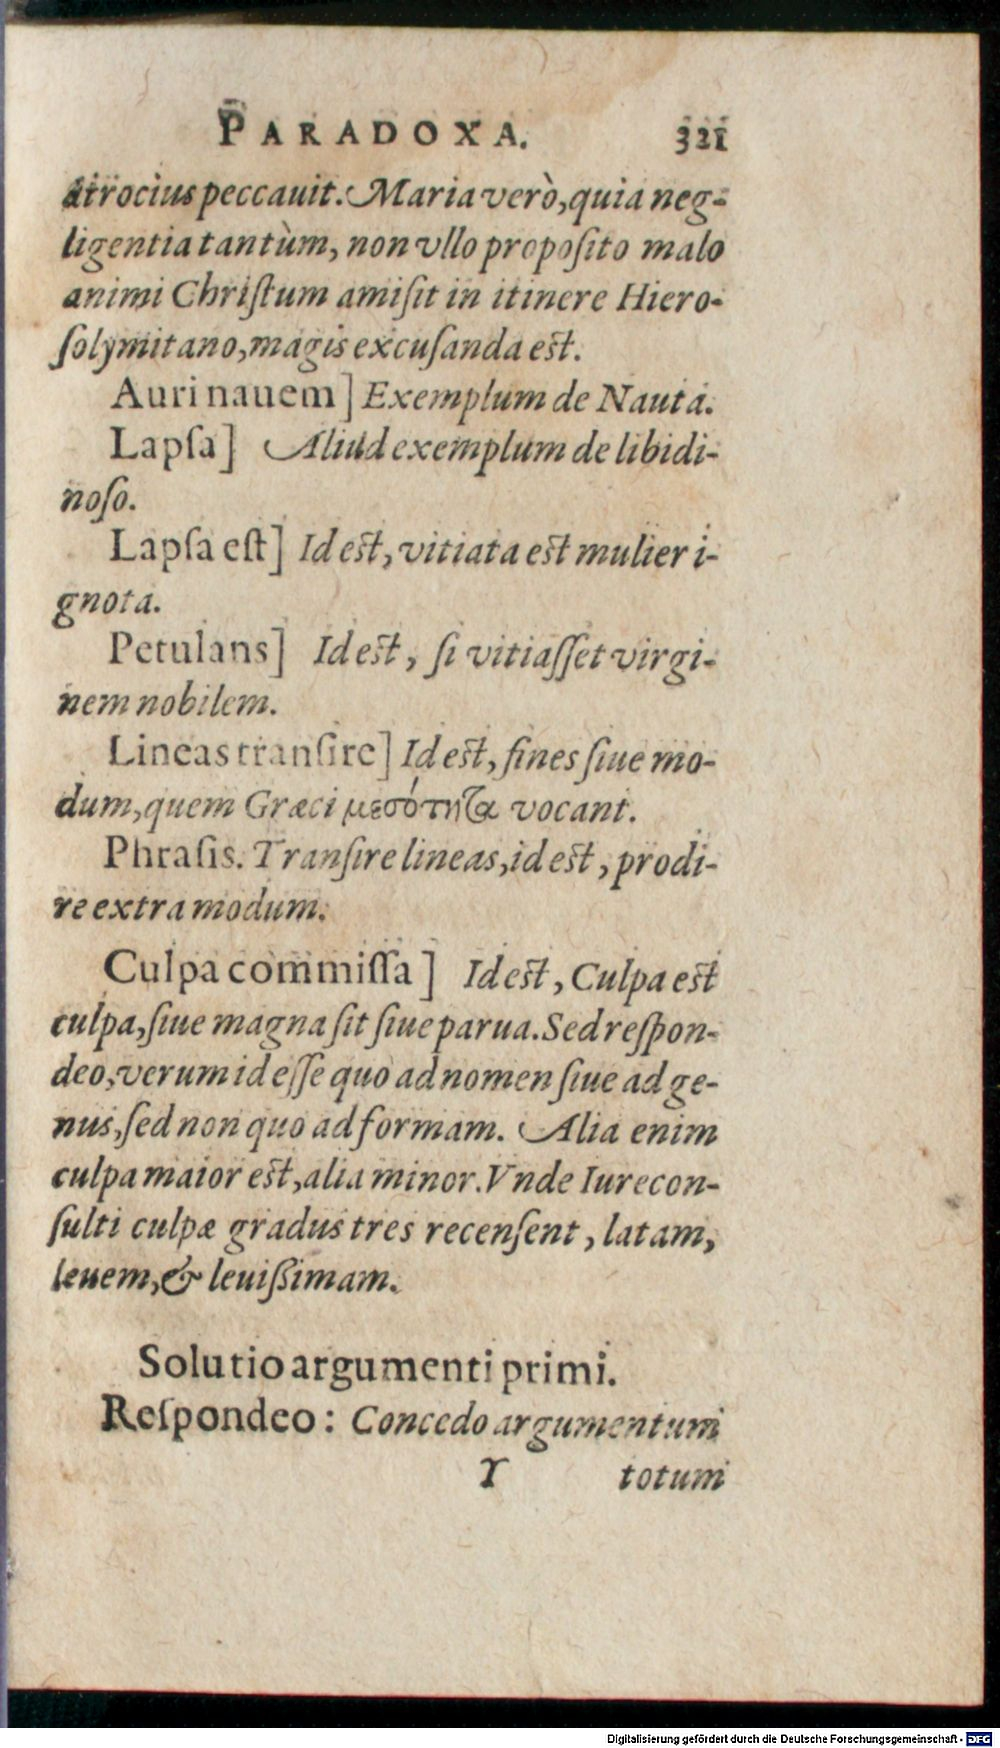 PARADOXA. 321
atrocius peccauit. Maria verò, quia neg-
ligentia tantùm, non vllo proposito malo
animi Christum amisit in itinere Hiero-
solymitano, magis excusanda est.
Auri nauem] Exemplum de Nauta.
Lapsa] Aliud exemplum de libidi-
noso.
Lapsa est] Id est, vitiata est mulier i-
gnota.
Petulans] Id est, si vitiasset virgi-
nem nobilem.
Lineas transire] Id est, fines siue mo-
dum, quem Græci μεσότητα vocant.
Phrasis. Transire lineas, id est, prodi-
re extra modum.
Culpa commissa] Id est, Culpa est
culpa, siue magna sit siue parua. Sed respon-
deo, verum id esse quo ad nomen siue ad ge-
nus, sed non quo ad formam. Alia enim
culpa maior est, alia minor. Vnde Iurecon-
sulti culpæ gradus tres recensent, latam,
leuem, & leuissimam.
Solutio argumenti primi.
Respondeo: Concedo argumentum
Y totum
Digitalisierung gefördert durch die Deutsche Forschungsgemeinschaft - DFG